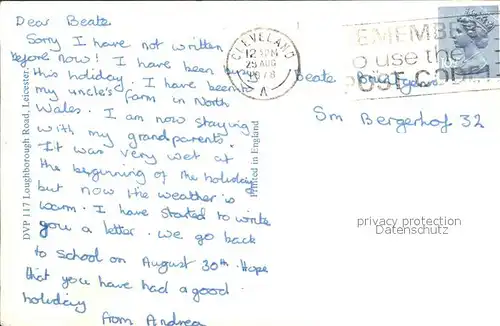 Dear Beate
Sorry I have not written
before now! I have been busy
this holiday. I have been to
my uncle's farm in North
Wales. I am now staying
with my grandparents.
It was very wet at
the beginning of the holiday
but now the weather is
warm. I have started to write
you a letter. We go back
to school on August 30th. Hope
that you have had a good
holiday
from Andrea
DVP 117 Loughborough Road, Leicester.
Printed in England
CLEVELAND
AUG
1978
A
REMEMBER
to use the
POST CODE
Beate
Sm Bergerhof 32
privacy protection
Datenschutz